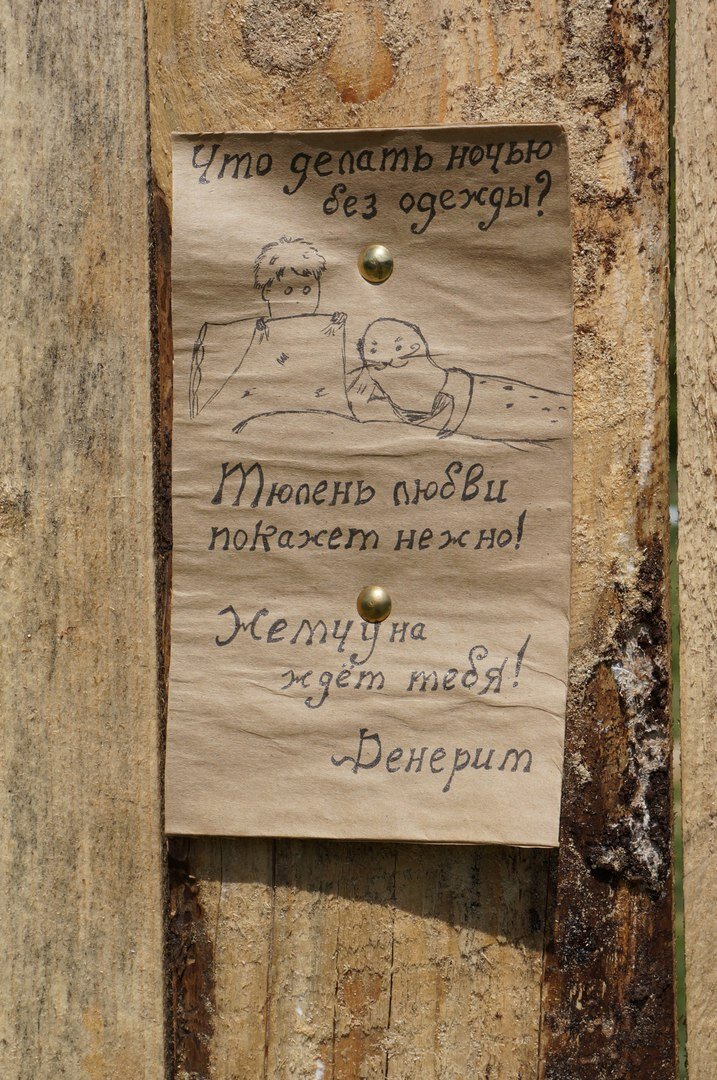 Что делать ночью
без одежды?
Тюлень любви
покажет нежно!
Жемчуна
ждёт тебя!
Денерит